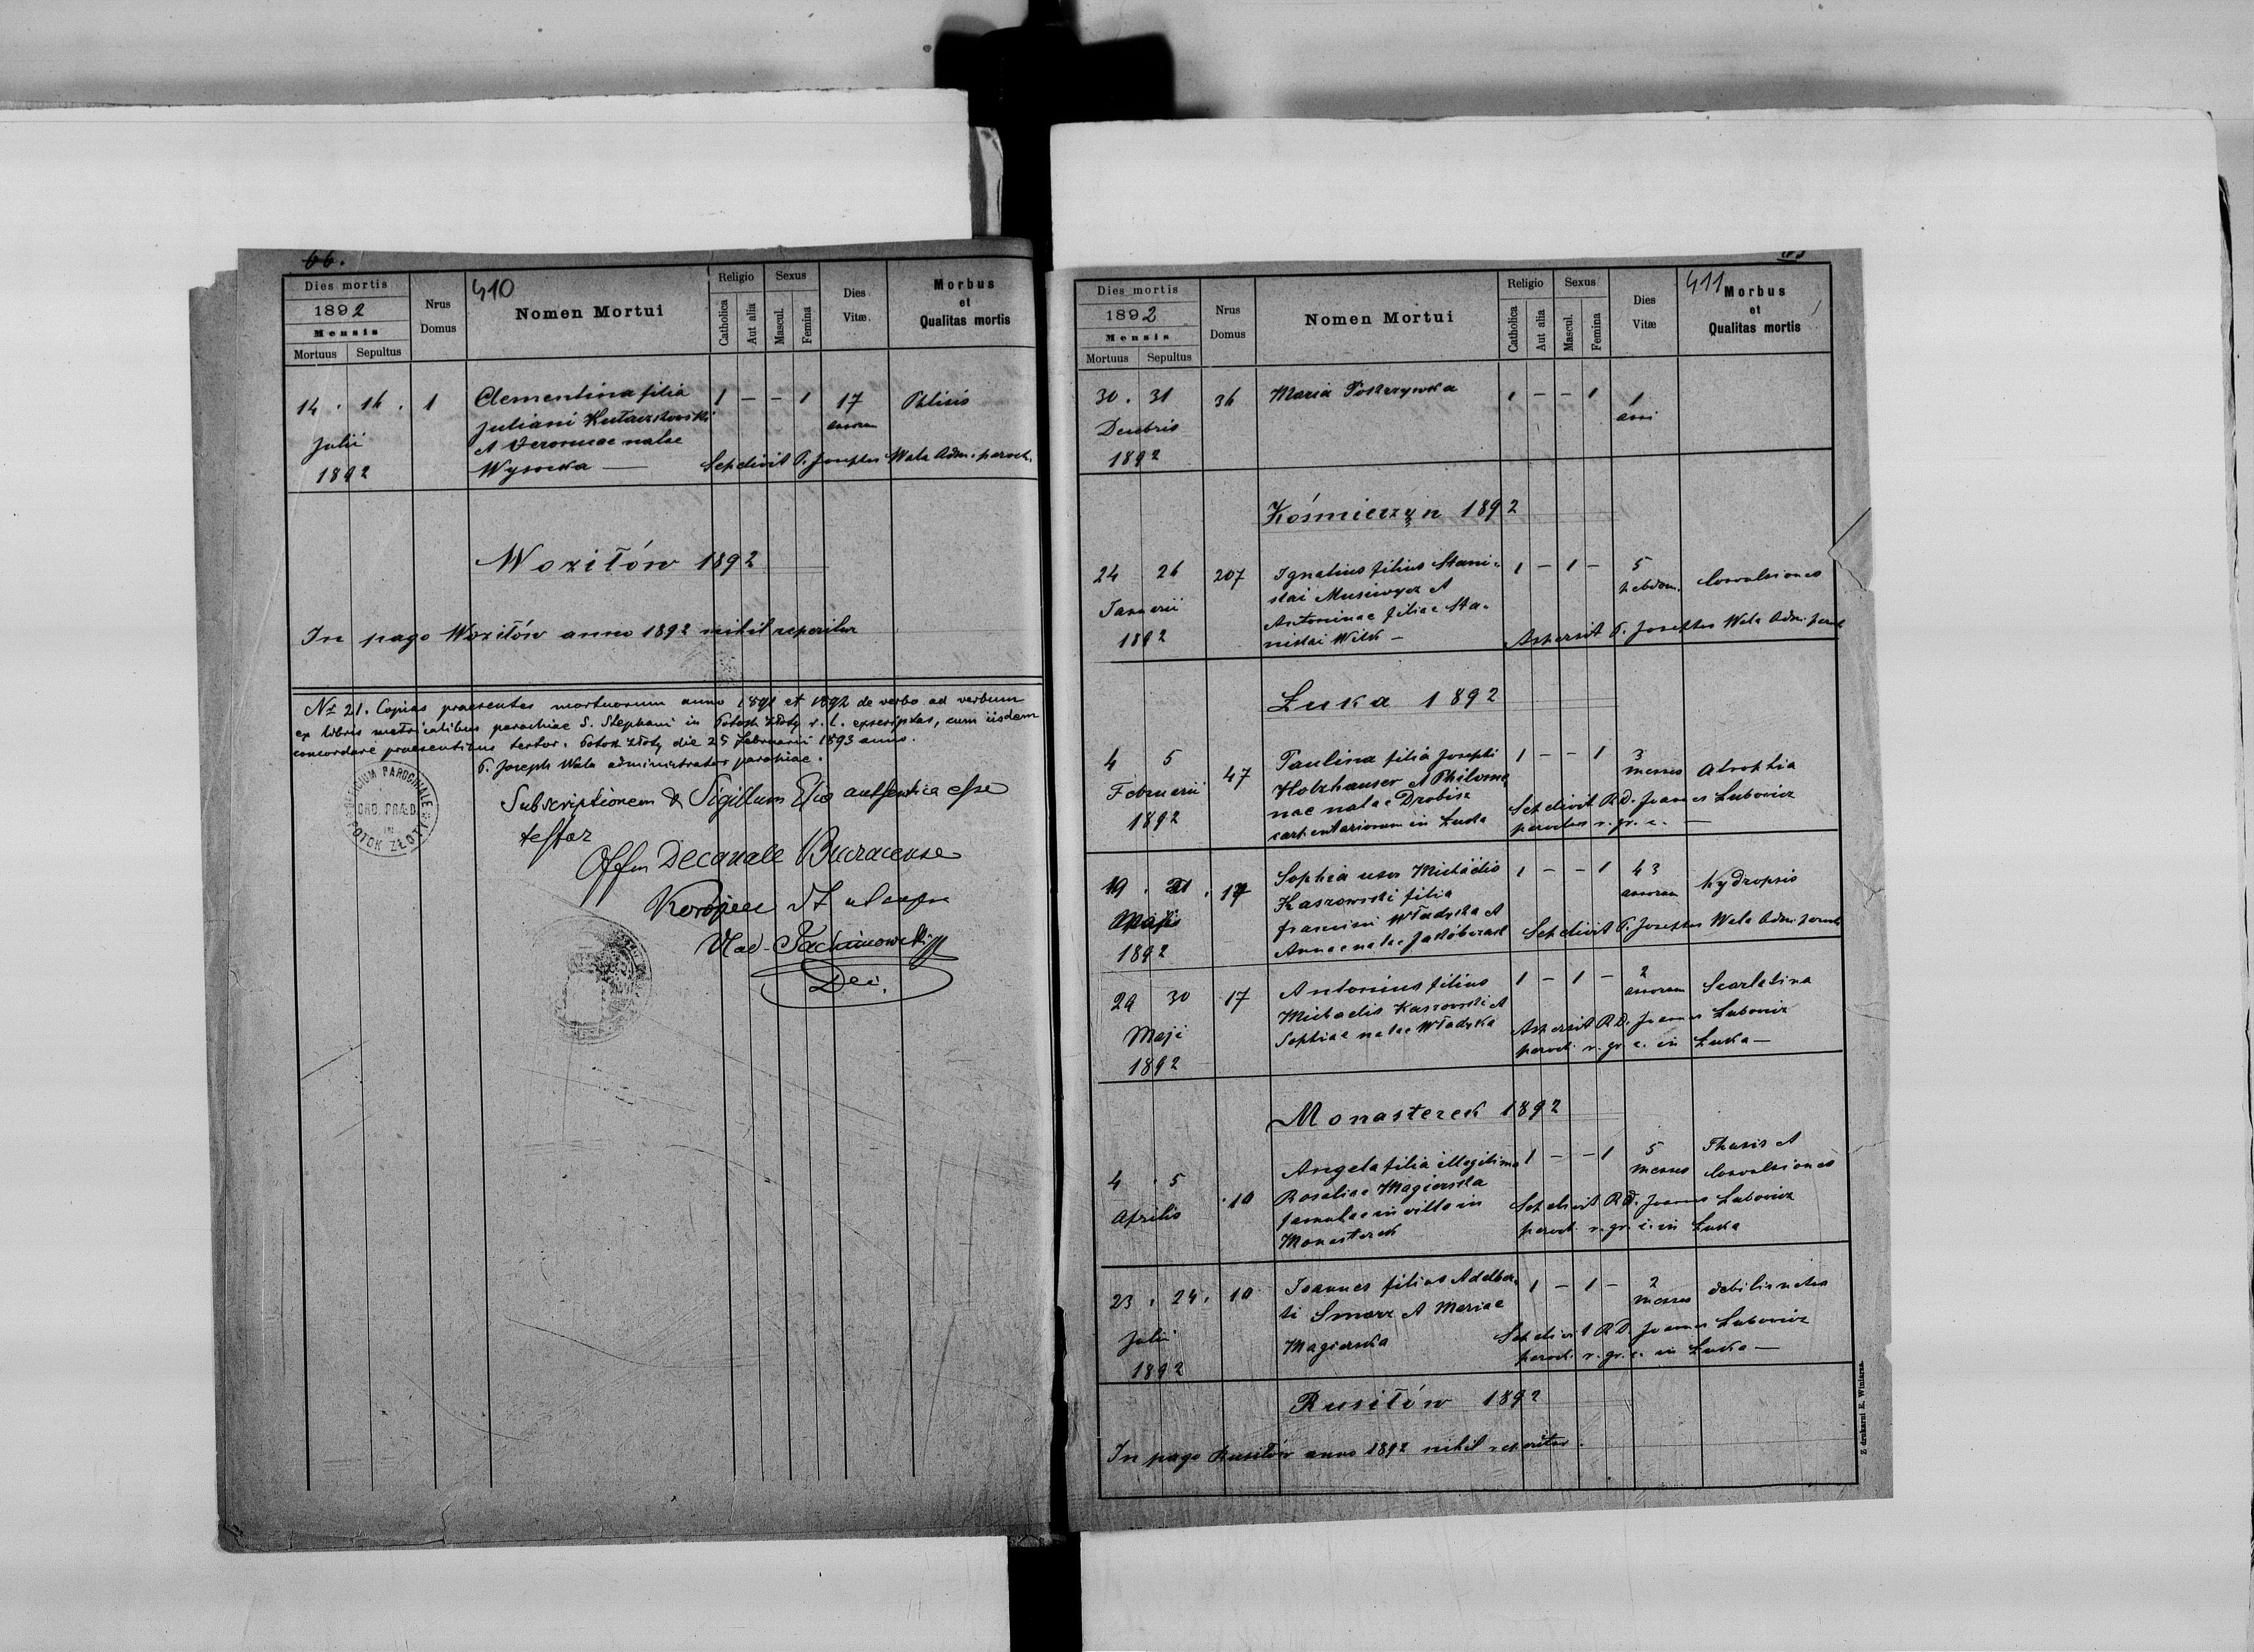 66.
410
Dies mortis
1892
Mensis
Mortuus Sepultus
Nrus
Domus
Nomen Mortui
Religio
Catholica
Aut alia
Sexus
Mascul.
Femina
Dies
Vitæ.
Morbus
et
Qualitas mortis
14. 16. 1 Clementina filia 1 – – 1 17 Phtisis
Juliani annorum
Julii et Veronicae natae
1892 Wysocka — Sepelivit P. Josephus Wala Adm. paroch.
Woziłów 1892
In pago Woziłów anno 1892 nihil reperitur
No 21. Copias praesentes mortuorum anno 1891 et 1892 de verbo ad verbum
ex libris metricalibus parochiae S. Stephani in Potok złoty r. l. exscriptas, cum iisdem
concordare praesentibus testor. Potok złoty die 25 Februarii 1893 anno.
P. Joseph Wala administrator parochiae.
OFFICIUM PAROCHIALE
ORD. PRÆD.
IN
POTOK ZŁOTY
Subscriptionem & Sigillum authentica esse
testor
Decanale Buczacense
ut supra
Vlad.
Dec.
411
Dies mortis
1892
Mensis
Mortuus Sepultus
Nrus
Domus
Nomen Mortui
Religio
Catholica
Aut alia
Sexus
Mascul.
Femina
Dies
Vitæ
Morbus
et
Qualitas mortis
30. 31 36 Maria 1 – – 1 1
Decembris anni
1892
Kośmierzyn 1892
24 26 207 Ignatius filius Stani- 1 – 1 – 5 Convulsiones
slai Musiewycz et hebdom.
Januarii Antoninae filiae Sta-
1892 nislai Wilk – Aspersit P. Josephus Wala Adm. paroch
Łuka 1892
4 5 47 Paulina filia Josephi 1 – – 1 3 Atrophia
Februarii Holzhauser et Philome menses
nae natae Drobisz Sepelivit R.D. Joannes Lubowicz
1892 carpentariorum in Łuka parochus r. gr. c. —
19. 21. 17 Sophia uxor Michaelis 1 – – 1 43 hydropsis
Kaszowski filia annorum
Maji Francisci Władyka et
1892 Annae natae Jakóbczak Sepelivit P. Josephus Wala Adm. paroch
29 30 17 Antonius filius 1 – 1 – 2 Scarlatina
Michaelis Kaszowski et annorum
Maji Sophiae natae Władyka Aspersit R.D. Joannes Lubowicz
1892 paroch. r. gr. c. in Łuka —
Monasterek 1892
4. 5 10 Angela filia illegitima 1 – – 1 5 Thusis et
Rosaliae Magierska menses Convulsiones
Aprilis famulae in villa in Sepelivit R.D. Joannes Lubowicz
Monasterek paroch. r. gr. c. in Łuka
23. 24. 10 Joannes filius Adalber- 1 – 1 – 2 debilis natus
ti Smarz et Mariae menses
Julii Magierska Sepelivit R.D. Joannes Lubowicz
1892 paroch. r. gr. c. in Łuka —
Rusiłów 1892
In pago Rusiłów anno 1892 nihil reperitur.
Z drukarni E. Winiarza.